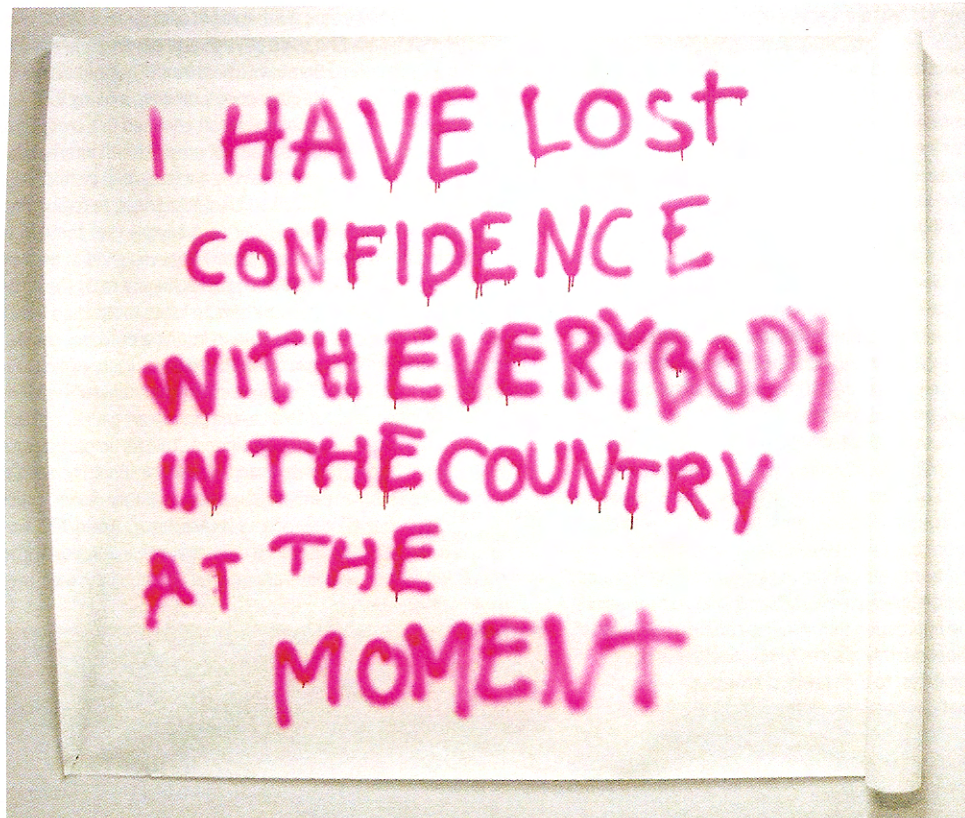 I HAVE LOST
CONFIDENCE
WITH EVERYBODY
IN THE COUNTRY
AT THE
MOMENT